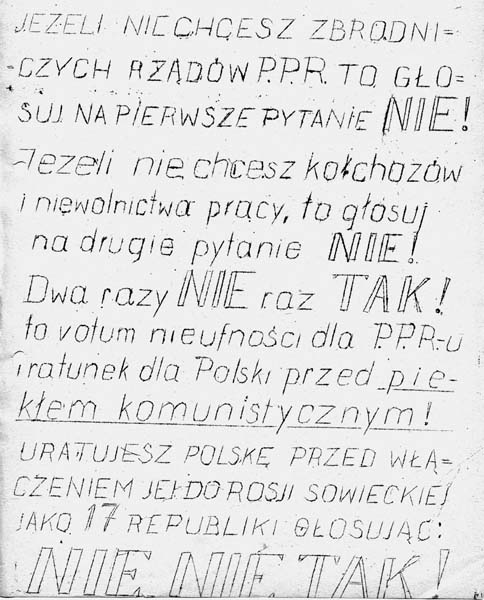 JEŻELI NIE CHCESZ ZBRODNI=
-CZYCH RZĄDÓW P.P.R. TO GŁO=
SUJ NA PIERWSZE PYTANIE NIE!
Jeżeli nie chcesz kołchozów
i niewolnictwa pracy, to głosuj
na drugie pytanie NIE!
Dwa razy NIE raz TAK!
to votum nieufności dla P.P.R-u
i ratunek dla Polski przed pie-
kłem komunistycznym!
URATUJESZ POLSKĘ PRZED WŁĄ=
CZENIEM JEJ DO ROSJI SOWIECKIEJ
JAKO 17 REPUBLIKI GŁOSUJĄC:
NIE NIE TAK!